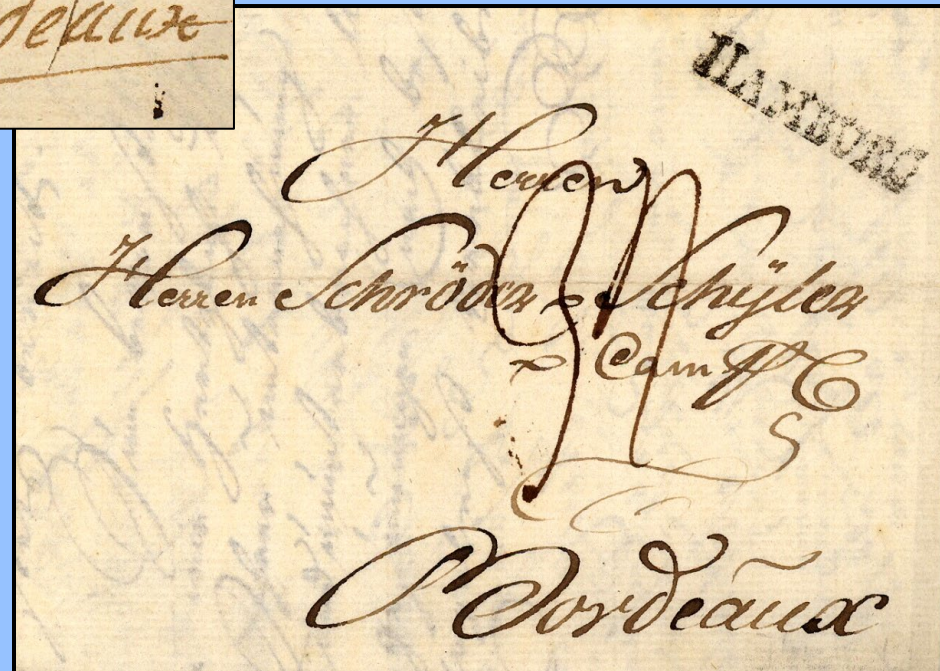 HAMBURG
Herren
Herren Schröder & Schÿler
& Comp
Bordeaux